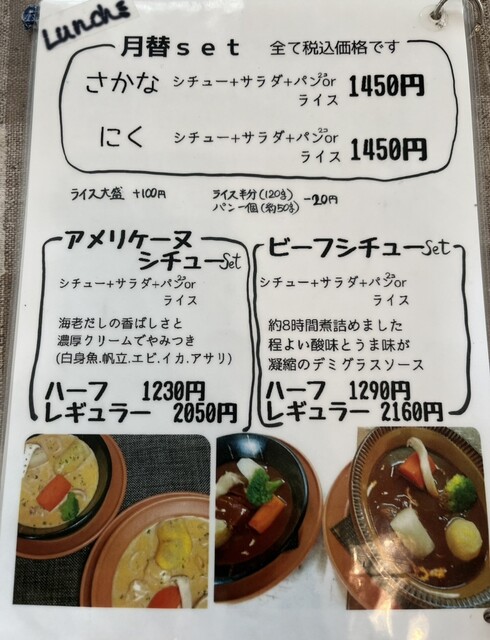 Lunch
月替set 全て税込価格です
さかな シチュー+サラダ+パン2コor
ライス 1450円
にく シチュー+サラダ+パン2コor
ライス 1450円
ライス大盛 +100円
ライス半分(120g)
パン一個(約50g) -20円
アメリケーヌ
シチューset
シチュー+サラダ+パン2コor
ライス
海老だしの香ばしさと
濃厚クリームでやみつき
(白身魚.帆立.エビ.イカ.アサリ)
ハーフ 1230円
レギュラー 2050円
ビーフシチューset
シチュー+サラダ+パン2コor
ライス
約8時間煮詰めました
程よい酸味とうま味が
凝縮のデミグラスソース
ハーフ 1290円
レギュラー 2160円